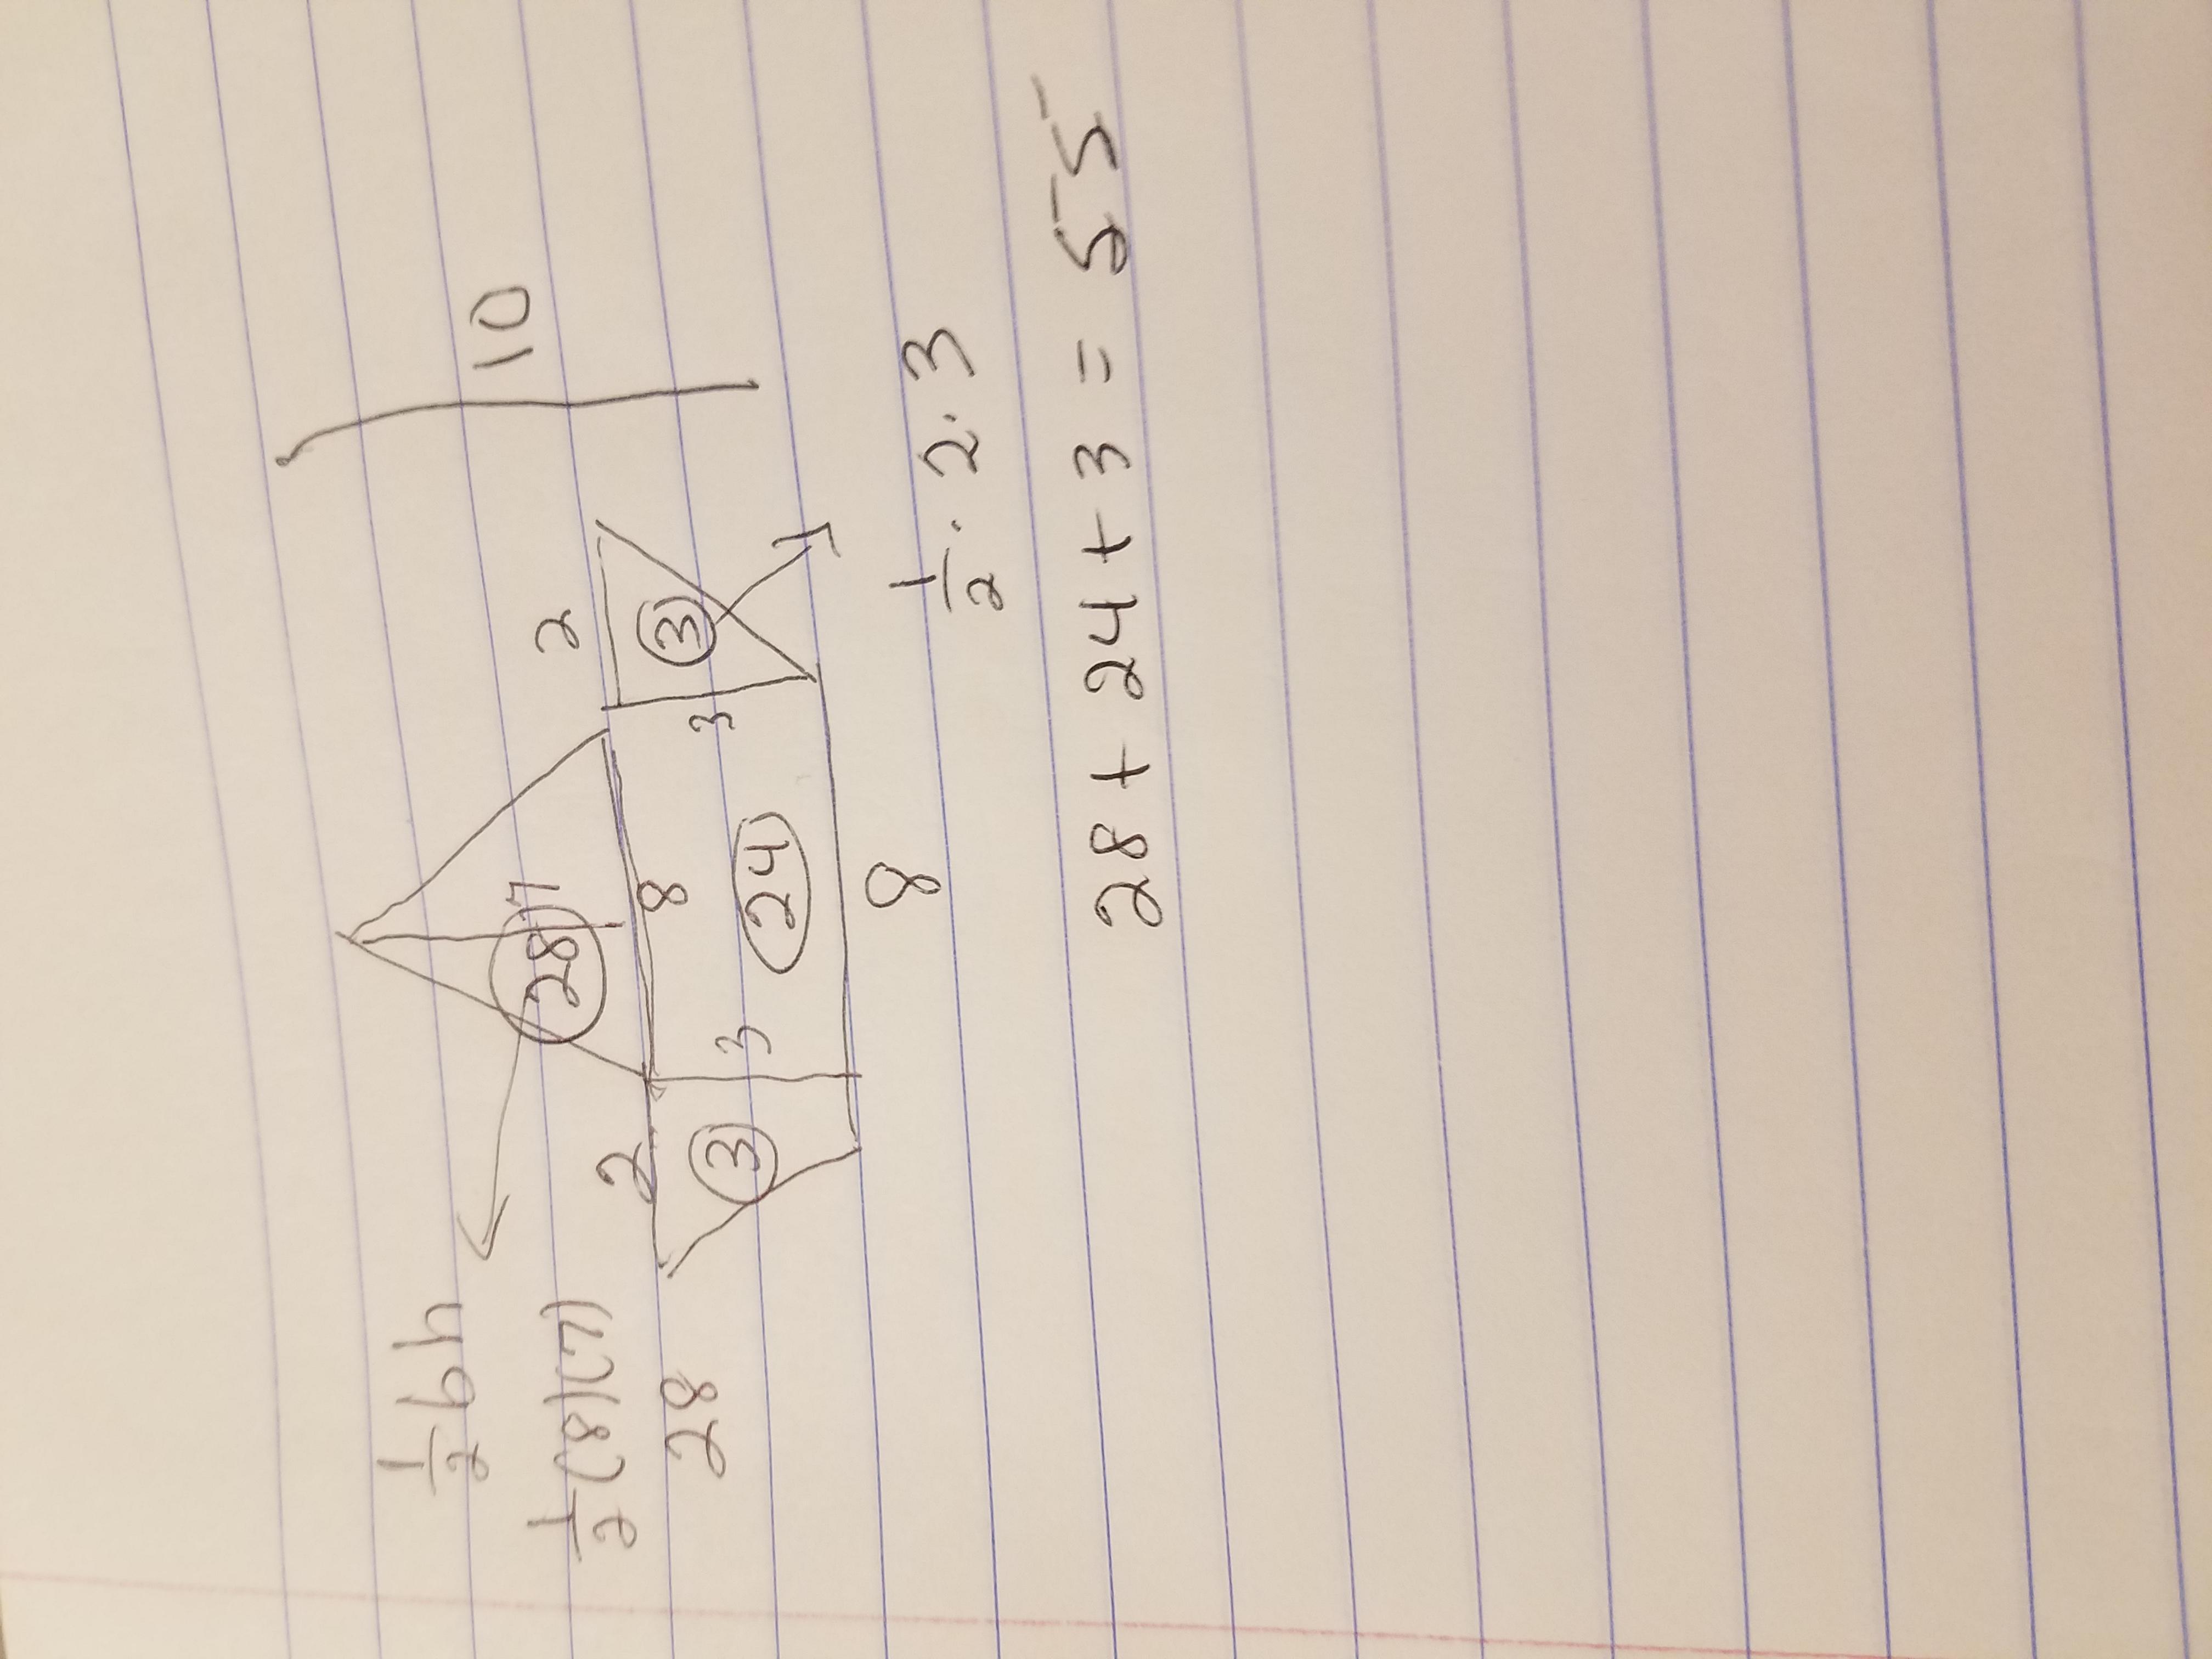 10
½bh
½(8)(7)
28
28
7
8
2
2
3
3
3
24
3
8
½·2·3
28+24+3=55